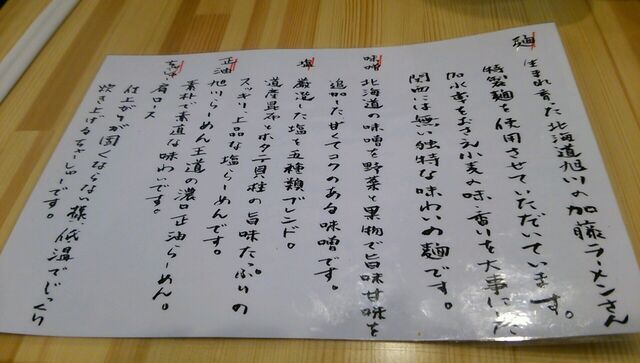 麺 生まれ育った北海道旭川の加藤ラーメンさん
特製麺を使用させていただいています。
加水率をおさえ小麦の味・香りを大事にした
関西には無い独特な味わいの麺です。
味噌 北海道の味噌を野菜と果物で旨味甘味を
追加した甘くてコクのある味噌です。
塩 厳選した塩を五種類ブレンド。
道産昆布とホタテ貝柱の旨味たっぷりの
スッキリ上品な塩らーめんです。
正油 旭川らーめん王道の濃口正油らーめん。
素朴で素直な味わいです。
ちゃーしゅー 肩ロース
仕上がりが固くならない様、低温でじっくり
炊き上げるちゃーしゅーです。